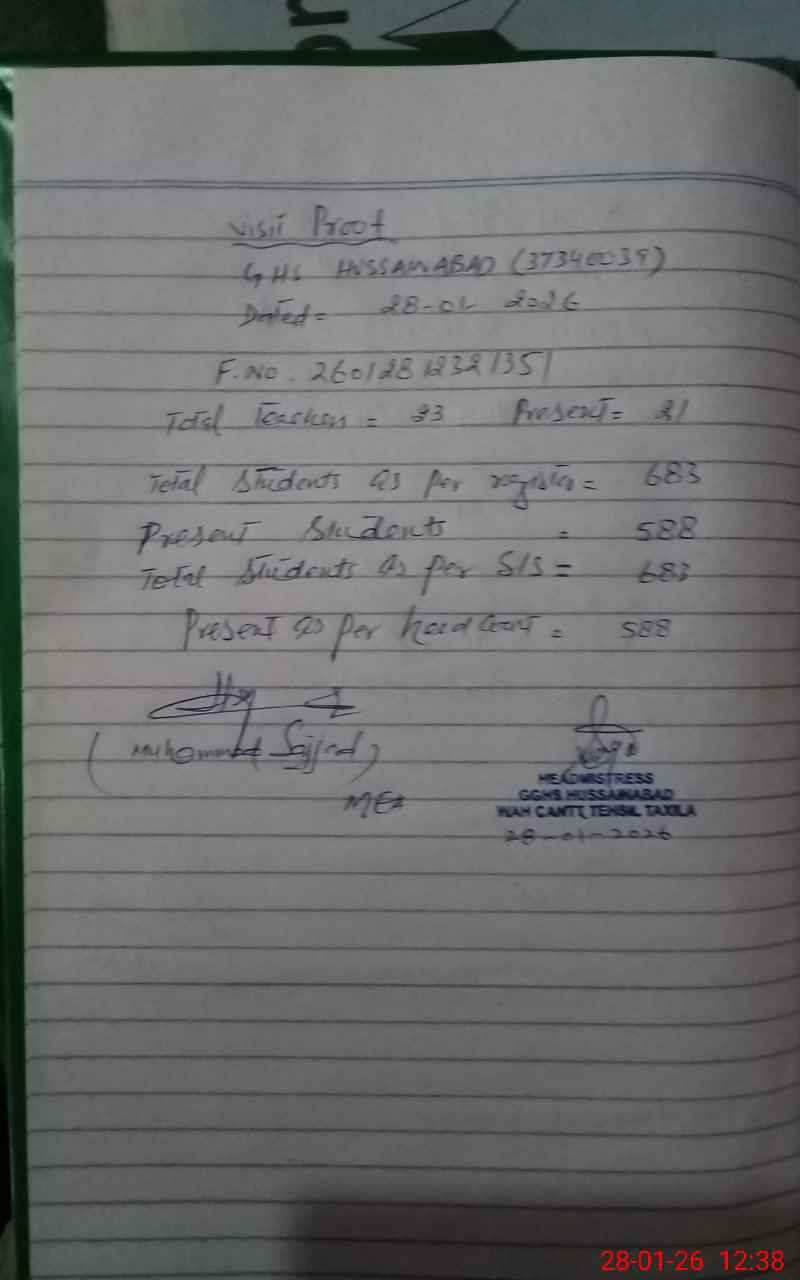 or
Visit Proof
GHS HUSSAINABAD (37340035)
Dated = 28-01-2026
F.No. 2601281232135 1
Total Teachers = 23 Present = 21
Total Students as per register = 683
Present Students = 588
Total Students as per SIS = 683
Present as per head count = 588
(Muhammad Sajjad)
MEA
HEADMISTRESS
GGHS HUSSAINABAD
WAH CANTT, TEHSIL TAXILA
28-01-2026
28-01-26 12:38